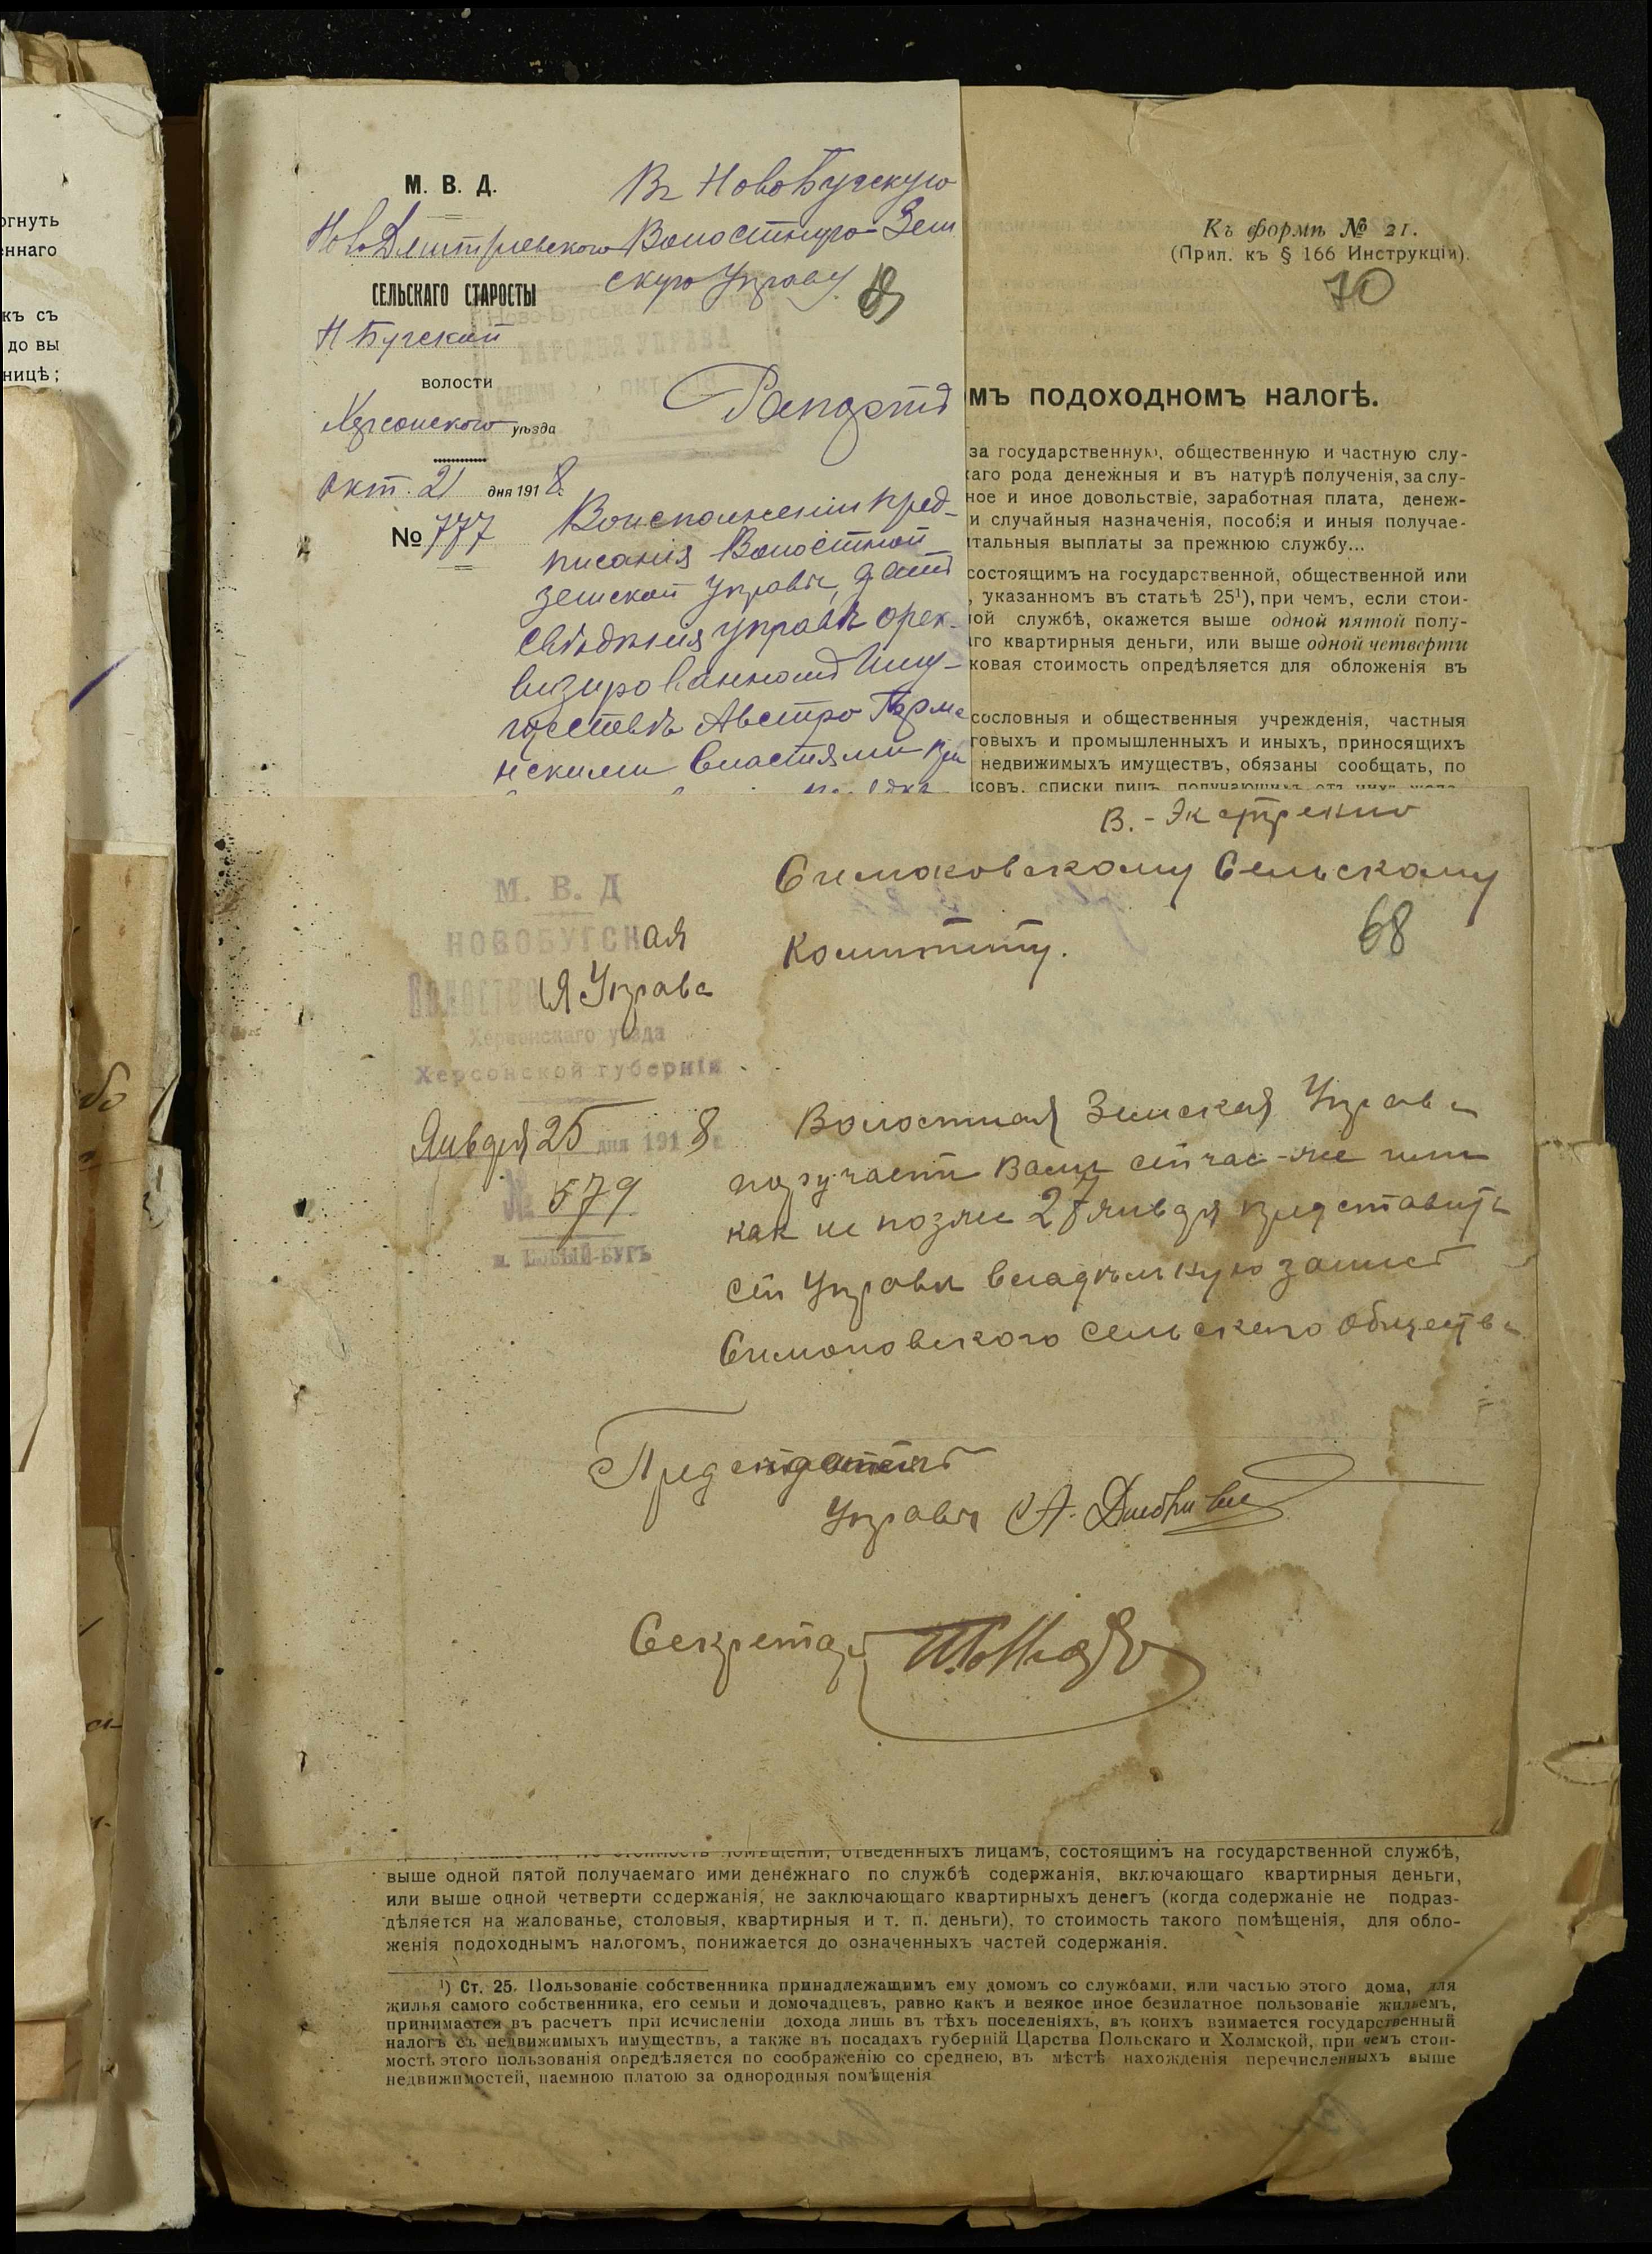 огнуть
еннаго
къ съ
до вы
ницѣ;
М. В. Д.
НовоДмитриевского
СЕЛЬСКАГО СТАРОСТЫ
Н Бугской
волости
Херсонского уѣзда
окт. 21 дня 1918 г.
№ 777
Въ НовоБугскую
Волостную Зем
скую Управу
69
НАРОДНЯ УПРАВА
Рапортъ
Воисполнении пред-
писания Волостной
земской Управы, даю
свѣдѣния управѣ орек-
визированномъ Иму-
щество Австро Герма
нскими властями при
Къ формѣ № 21.
(Прил. къ § 166 Инструкціи).
70
мъ подоходномъ налогѣ.
за государственную, общественную и частную слу-
каго рода денежныя и въ натурѣ полученія, за слу-
ное и иное довольствіе, заработная плата, денеж-
и случайныя назначенія, пособія и иныя получае-
тальныя выплаты за прежнюю службу...
состоящимъ на государственной, общественной или
, указанномъ въ статьѣ 25¹), при чемъ, если стои-
ной службѣ, окажется выше одной пятой полу-
го квартирныя деньги, или выше одной четверти
ковая стоимость опредѣляется для обложенія въ
сословныя и общественныя учрежденія, частныя
говыхъ и промышленныхъ и иныхъ, приносящихъ
недвижимыхъ имуществъ, обязаны сообщать, по
совъ, списки лицъ, получающихъ отъ нихъ жало-
В.-Экстренно
Симоновскому Сельскому
Комитету.
68
М. В. Д
НОВОБУГСКая
ВОЛОСТНая Управа
Херсонскаго уѣзда
Херсонской губерніи
Января 25 дня 1918 г.
№ 579
м. НОВЫЙ-БУГЪ
Волостная Земская Управа
поручает Вам сейчас-же или
как не позже 27 января представить
сей Управе владѣльную запись
Симоновского сельского общества
Председатель
Управы А.
Секретарь
стоимость помѣщеній, отведенныхъ лицамъ, состоящимъ на государственной службѣ,
выше одной пятой получаемаго ими денежнаго по службѣ содержанія, включающаго квартирныя деньги,
или выше одной четверти содержанія, не заключающаго квартирныхъ денегъ (когда содержаніе не подраз-
дѣляется на жалованье, столовыя, квартирныя и т. п. деньги), то стоимость такого помѣщенія, для обло-
женія подоходнымъ налогомъ, понижается до означенныхъ частей содержанія.
¹) Ст. 25. Пользованіе собственника принадлежащимъ ему домомъ со службами, или частью этого дома, для
жилья самого собственника, его семьи и домочадцевъ, равно какъ и всякое иное безплатное пользованіе жильемъ,
принимается въ расчетъ при исчисленіи дохода лишь въ тѣхъ поселеніяхъ, въ коихъ взимается государственный
налогъ съ недвижимыхъ имуществъ, а также въ посадахъ губерній Царства Польскаго и Холмской, при чемъ стои-
мость этого пользованія опредѣляется по соображенію со среднею, въ мѣстѣ нахожденія перечисленныхъ выше
недвижимостей, наемною платою за однородныя помѣщенія